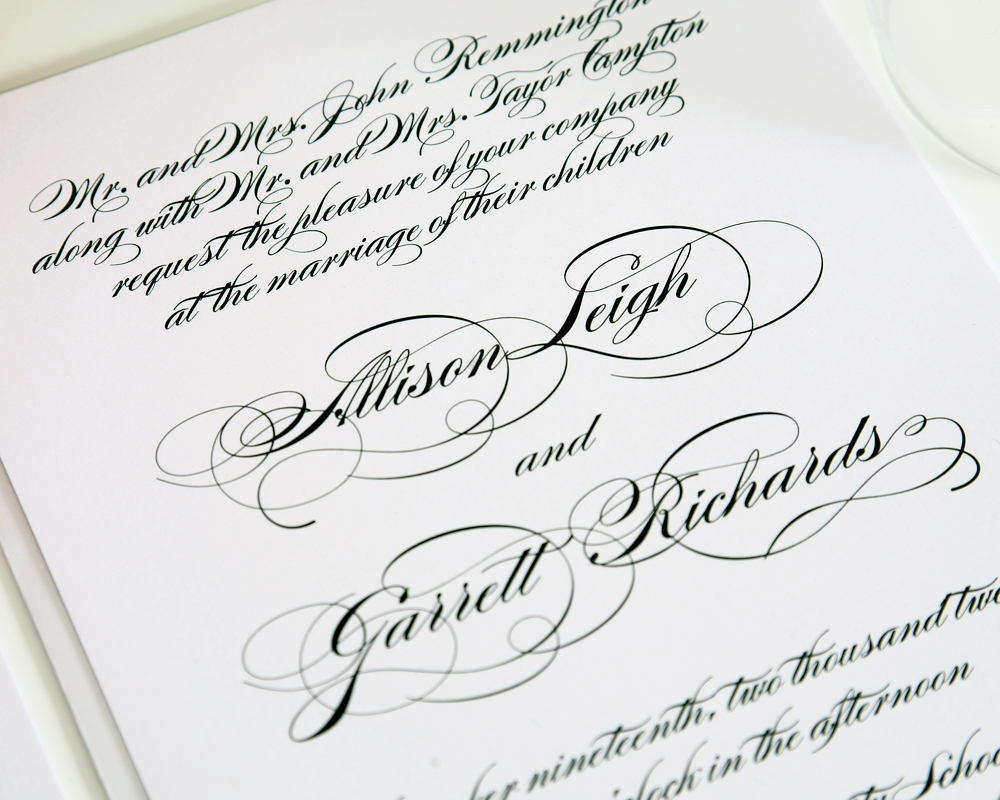 Mr. and Mrs. John Remmington
along with Mr. and Mrs. Tayor Campton
request the pleasure of your company
at the marriage of their children
Allison Leigh
and
Garrett Richards
nineteenth, two thousand
in the afternoon